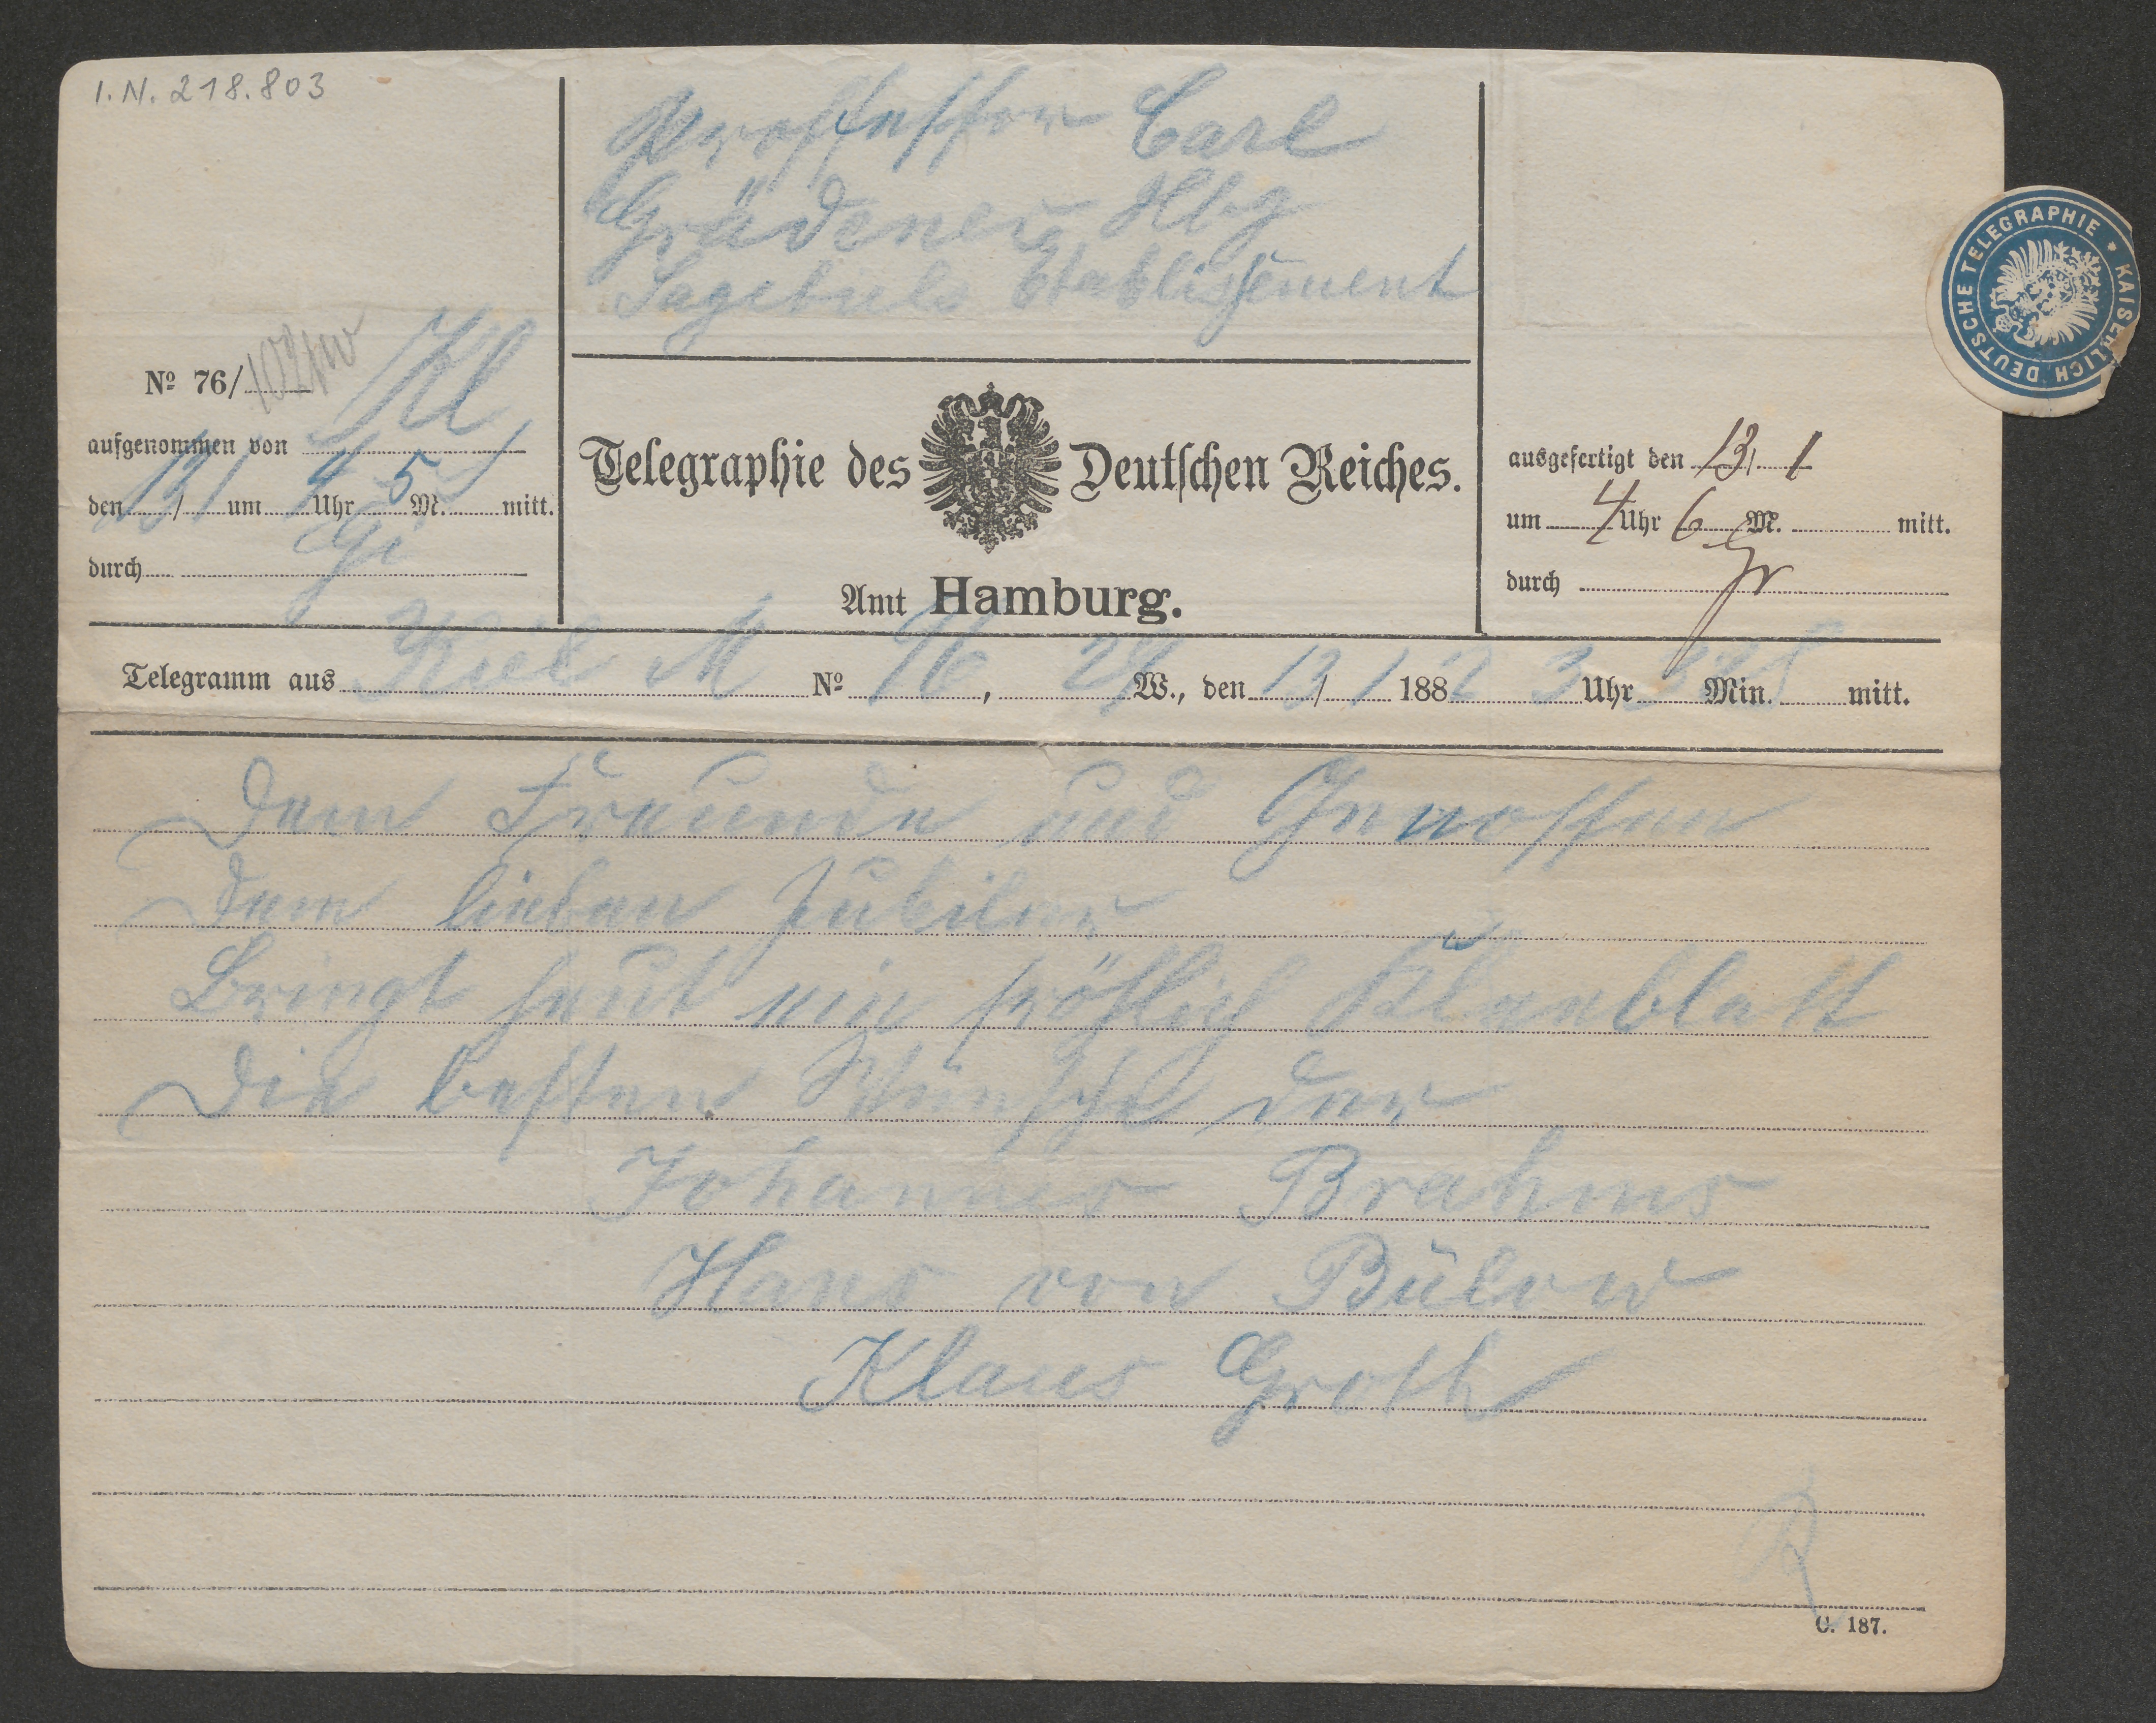 I.N. 218.803
Professor Carl
Grädener Hbg
Sagebiels Etablissement
KAISERLICH DEUTSCHE TELEGRAPHIE
No 76/
aufgenommen von Kl
den 13/1 um 4 Uhr 5 M. mitt.
durch Gi
Telegraphie des Deutschen Reiches.
Amt Hamburg.
ausgefertigt den 13/1
um 4 Uhr 6 M. mitt.
durch Gr
Telegramm aus Kiel M No 76, 24 W., den 13/1 1882 3 Uhr Min. mitt.
Dem Freunde und Genossen
Dem lieben Jubilar
Bringt heut ein fröhlich Kleeblatt
Die besten Wünsche dar
Johannes Brahms
Hans von Bülow
Klaus Groth
R
C. 187.